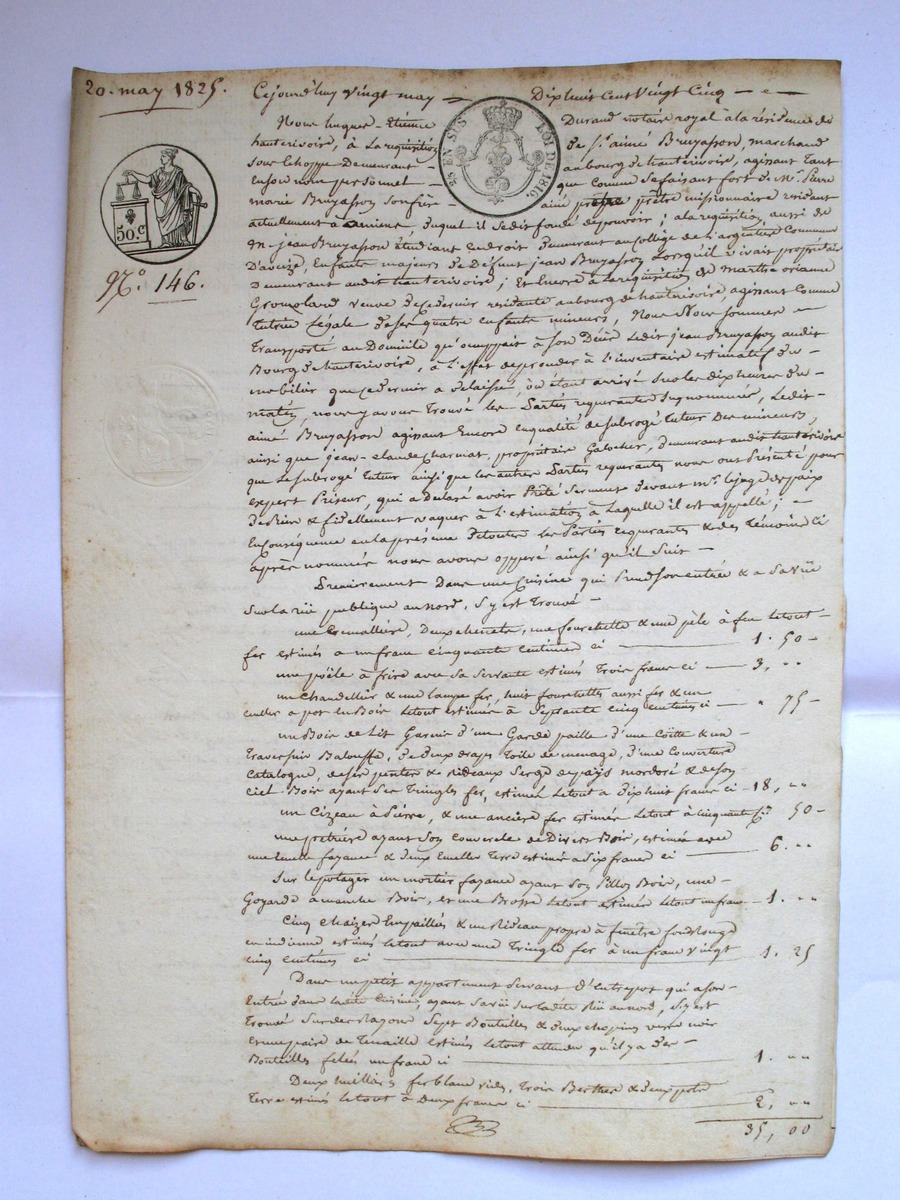 20. may 1825.
Cejourd'huy vingt may — Dix huit cent vingt Cinq — e —
25 EN SUS
LOI DE 1816.
50.c
N.o 146.
Nous hugues-Etienne Durand notaire royal à la résidence de
hauterivoire, à la requisition de S.r aimé Bruyasson, marchand
Sous Echoppe Demeurant au bourg de hauterivoire, agissant tant
En Son nom personnel — que comme Se faisant fort de M.r Pierre
marie Bruyasson Son frère — ainé prêtre missionnaire résidant
actuellement à amiens, Duquel il Se dit fondé de pouvoir; a la requisition aussi de
jean Bruyasson Etudiant En droit Demeurant au College de l'argentière Commune
D'aveize, Enfants majeurs de Défunt jean Bruyasson Lorsqu'il vivait propriétaire
Demeurant audit hauterivoire; Et Encore à la requisition de marthe orianne
Gromolard veuve De ce dernier résidante au bourg de hauterivoire, agissant Comme
tutrice Légale De ses quatre enfants mineurs, Nous Nous Sommes —
Transporté au Domicile qu'occupait à Son Décès Ledit jean Bruyasson audit
Bourg de hauterivoire, à l'effet de proceder à l'inventaire estimatif Du —
mobilier que ce dernier a Délaissé, où étant arrivé Sur les dix heures Du —
matin, nous y avons Trouvé les Parties requerantes Susnommées, Ledit
aimé Bruyasson agissant Encore En qualité de Subrogé tuteur Des mineurs,
ainsi que jean-claude Charmat, propriétaire Galocher, Demeurant audit hauterivoire
que Le Subrogé tuteur ainsi que les autres Parties requerantes nous ont Présenté pour
expert Priseur, qui a Declaré avoir Prêté Serment Devant m.r le juge de paix
De Bien & fidellement vaquer à L'estimation à Laquelle il est appellé; —
En Conséquence en la présence De toutes les Parties requerantes & des Témoins Ci
après nommés nous avons opperé ainsi qu'il Suit —
Premierement Dans une Cuisine qui Prend Son entrée & a Sa vüe
Sur la rüe publique au nord, S'y est Trouvé —
une Cremallière, Deux chenets, une fourchette & une pèle à feu Le tout —
fer estimés a un franc cinquante Centimes ci — 1. 50 —
une poële à frire avec Sa Servante estimés Trois francs ci — 3, "
un Chandellier & une lampe fer, huit fourchettes aussi fer & une
cuiller a pot En Bois Le tout estimée à Septante cinq centimes ci — " 75 —
un Bois de Lit Garni d'un Garde paille d'une Coitte & un —
Traversin Balouffe, De deux draps Toile de menage, d'une Couverture
Catalogne, de Ses pentes & rideaux Serge de pays mordoré & de Son
Ciel Bois ayant Ses Tringles fer, estimés Le tout a Dix huit francs ci — 18, "
un Cizeau à Pierre, & une ancière fer estimés Le tout à Cinquante C. 50 —
une petrière ayant Son Couvercle de Divers Bois, estimée avec
une Emelle fayance & Deux Emelles Terre estimé a Six francs ci — 6. "
Sur Le potager un mortier fayance ayant Son Pillon Bois, une —
Goyarde à manche Bois, et une Brosse Le tout estimé Le tout un franc — 1. "
Cinq Chaizes Empaillés & un Rideau propre à fenêtre fond rouge
en indienne estimés Le tout avec une Tringle fer à un franc vingt
cinq centimes ci — 1. 25
Dans un petit appartement Servant d'Entrepot qui a Son —
Entrée Dans ladite Cuisine, ayant Sa vüe Sur ladite Rüe au nord, S'y est
Trouvé Sur des Rayons Sept Bouteilles & Deux chopines verre noir
et une paire de Tenaille estimés Le tout attendu qu'il y a Des —
Bouteilles felées un franc ci — 1. "
Deux huilliers fer blanc vides, Trois Berthes & Deux pots
Terre estimés Le tout à Deux francs ci — 2, "
35, 00